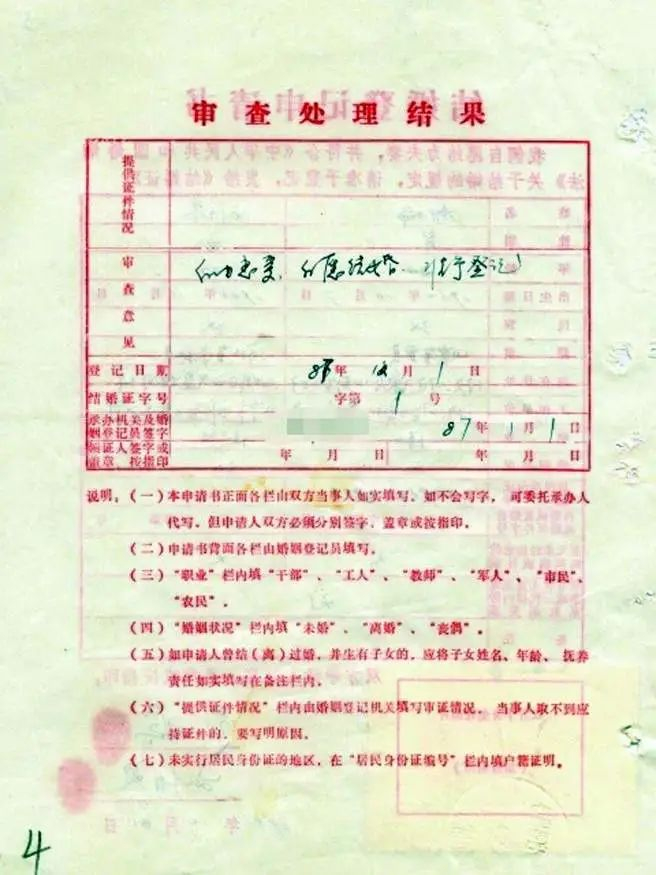 审查处理结果
提供证件情况
审查意见
自愿结婚 准予登记
登记日期 年 月 1 日
结婚证字号 字第 1 号
承办机关及婚姻登记员签字 87 年 1 月 1 日
领证人签字或盖章、按指印 年 月 日
说明:(一)本申请书正面各栏由双方当事人如实填写。如不会写字,可委托承办人
代写。但申请人双方必须分别签字、盖章或按指印。
(二)申请书背面各栏由婚姻登记员填写。
(三)“职业”栏内填“干部”、“工人”、“教师”、“军人”、“市民”、
“农民”。
(四)“婚姻状况”栏内填“未婚”、“离婚”、“丧偶”。
(五)如申请人曾结(离)过婚,并生有子女的,应将子女姓名、年龄、抚养
责任如实填写在备注栏内。
(六)“提供证件情况”栏内由婚姻登记机关填写审证情况。当事人取不到应
持证件的,要写明原因。
(七)未实行居民身份证的地区,在“居民身份证编号”栏内填户籍证明。
4